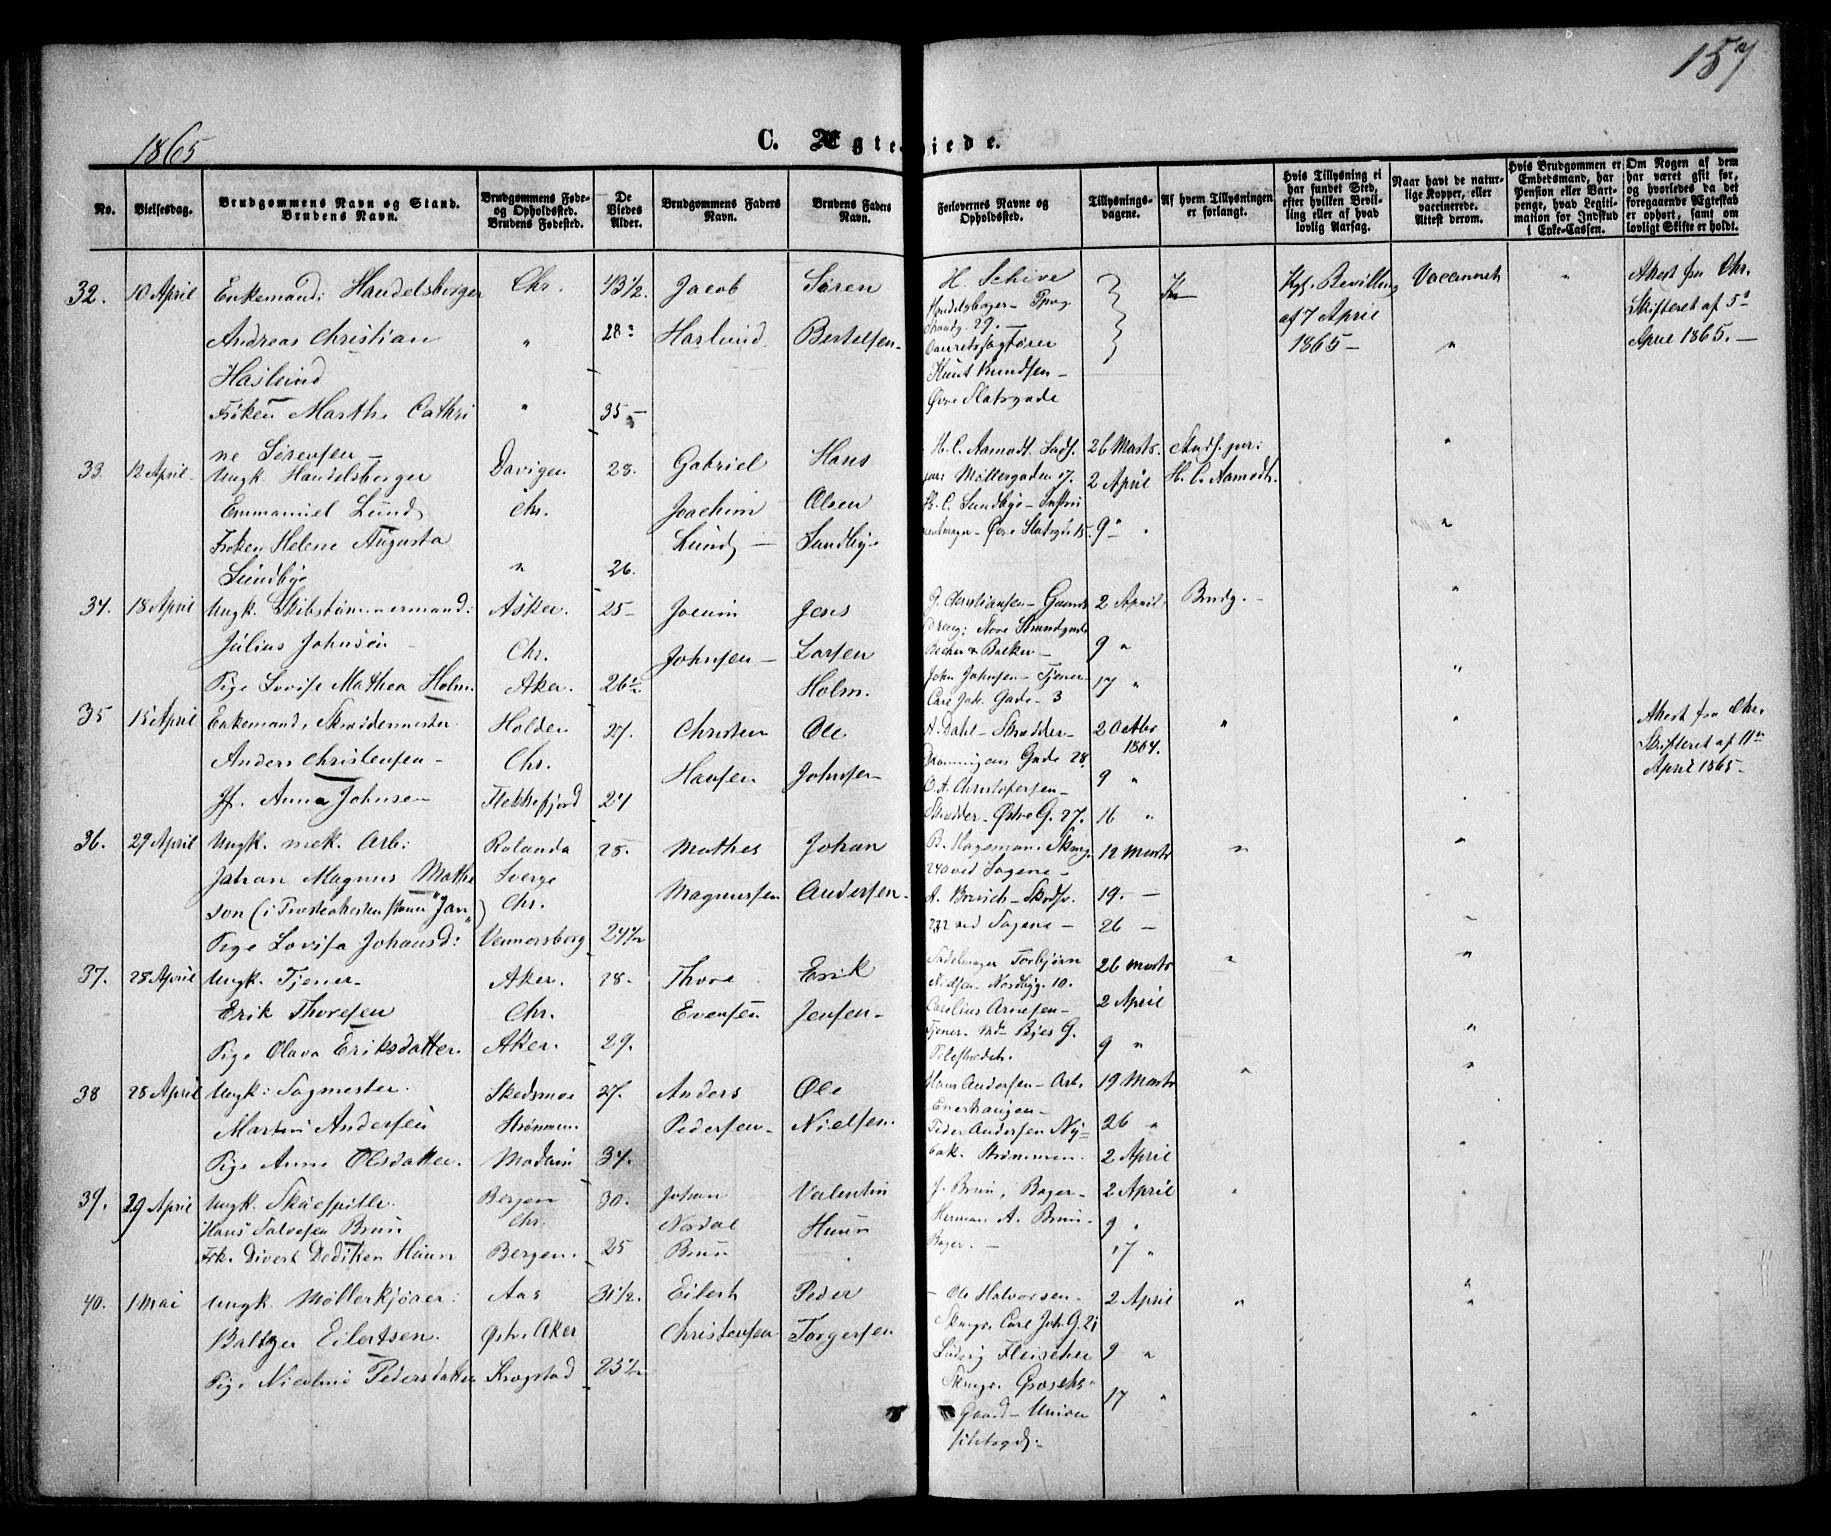 157
1865
C. Ægteviede.
No.
Vielsesdag.
Brudgommens Navn og Stand.
Brudens Navn.
Brudgommens Føde-
og Opholdssted.
Brudens Fødested.
De
Viedes
Alder.
Brudgommens Faders
Navn.
Brudens Faders
Navn.
Forlovernes Navne og
Opholdssted.
Tillysnings-
dagene.
Af hvem Tillysningen
er forlangt.
Hvis Tillysning ei
har fundet Sted,
efter hvilken Bevil-
ling eller af hvad
lovlig Aarsag.
Naar havt de natur-
lige Kopper, eller
vaccinerede.
Attest derom.
Hvis Brudgommen er
Embedsmand, har
Pension eller Vart-
penge, hvad Legiti-
mation for Indskud
i Enke-Cassen.
Om Nogen af dem
har været gift for,
og hvorledes da det
foregaaende Ægteskab
er ophørt, samt om
lovligt Skifte er holdt.
32. 10 April Enkemand: Handelsborger Chr. 43½. Jacob Søren H. Schive Kgl. Bevilling Vaccineret " Attest fra Chr.
Handelsborger
Andreas Christian " 28 Haslund Bertelsen 29. af 7 April " Skifteret af 5
Overretssagfører 1865 April 1865.
Haslund Knut Knudsen
Frøken Marthe Cathri " 35 Øvre Slotsgade
ne Sørensen
33 12 April Ungk. Handelsborger Davigen 28. Gabriel Hans H. C. Aamodt 26 Marts "
Møllergaden 17. 2 April H. C. Aamodt
Emmanuel Lund Chr. Joachim Olsen H. C. Sundbye
Frøken Helene Augusta Lund Sundbye Øvre Slotsgd 15. 9 " "
Sundbye " 26.
34. 18 April Ungk. Skibstømmermand: Asker. 25 Jocum Jens G. Christiansen 2 April Brudg. "
Julius Johnsen Chr. Johnsen Larsen Becher & Backer 9 "
Pige Lovise Mathea Holm. Aker. 26½ Holm. John Johnsen Tjener 17 " "
Carl Joh. Gade 3
35 15 April Enkemand, Skræddermester Holden 27. Christen Ole A. Dahl Skrædder 2 Octbr " " Attest fra Chr.
1864. Skifteret af 11
Anders Christensen Chr. Hansen Johnsen Dronningens Gade 28. 9 " April 1865.
O. A. Christophersen
Jf. Anna Johnsen Flekkefjord 24 Skrædder Østre G. 27. 16 "
36. 29 April Ungk. mek. Arb: Rolanda 28. Mathes Johan B. Hageman 12 Marts " "
Johan Magnus Mathe Sverge Magnussen Andersen 240 ved Sagene
son (i "Jan") Chr. 19.
Pige Lovisa Johansd: Vennersborg 24½ 232 ved Sagene 26
37. 28 April Ungk. Tjener Aker 28. Thore Erik Sadelmager Torbjørn 26 Marts " "
Nielsen Nordbyg. 10.
Erik Thoresen Chr. Evensen Jensen Carelius Arnesen 2 April
Tjener
Pige Olava Eriksdatter. Aker. 29. 9 "
38 28 April Ungk: Sagmester Skedsmoe 27. Anders Ole Hans Andersen Arb. 19 Marts " "
Enerhaugen
Martin Andersen Strømmen Pedersen Nielsen Peder Andersen Ny 26 "
Pige Anne Olsdatter. 34. Strømmen. 2 April
39. 29 April Ungk. Skuespiller Bergen 30. Johan Valentin J. Brun, Bager 2 April " "
Hans Salvesen Brun Chr. Nordal Huun Herman A. Brun 9 "
Frk. Divert Dediken Huun Bergen. 25 Brun Bager. 17 "
40. 1 Mai Ungk. Møllerkjører: Aas 31½. Eilert Peder Ole Halvorsen 2 April " "
Carl Joh. G. 21
Baltzer Eilertsen Østre Aker Christensen Torgersen Ludvig Fleischer 9 "
Pige Nicoline Pedersdatter Krogstad 23½ 17 "
Gaard Univer
sitetsgd.